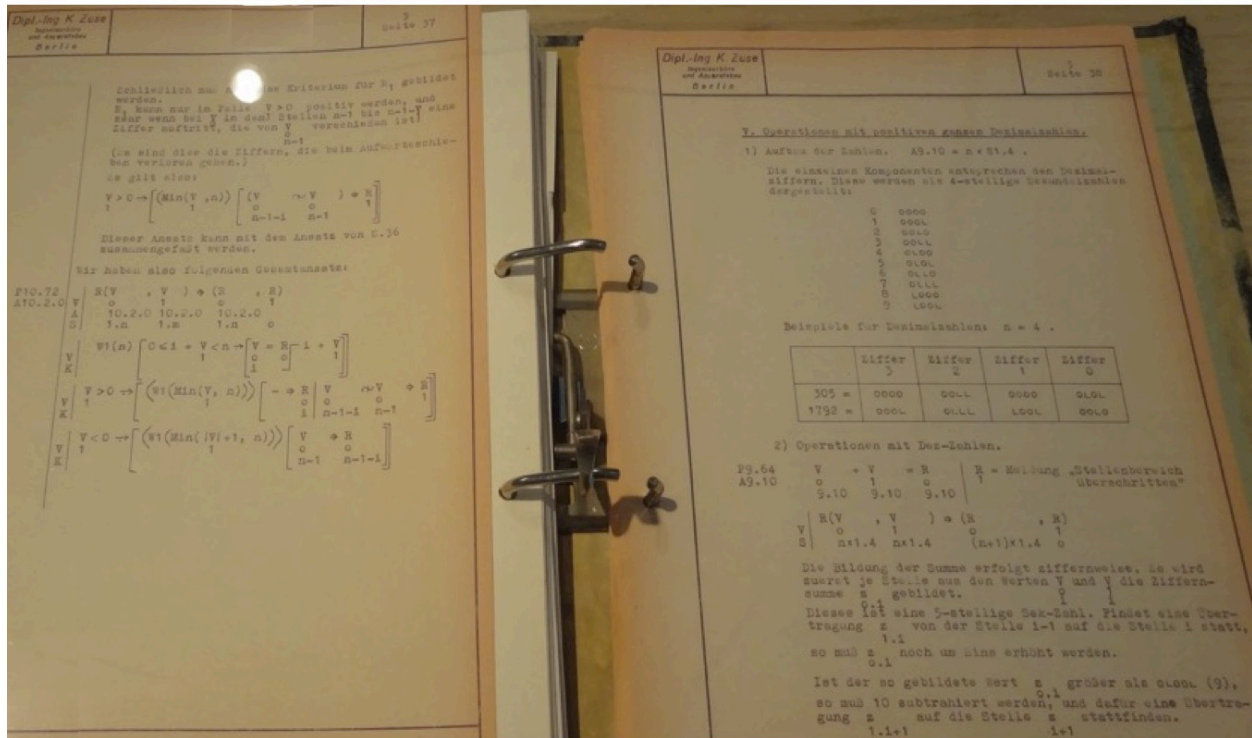 Dipl.-Ing K. Zuse
Ingenieurbüro
und Apparatebau
Berlin
Seite 37
Schließlich muß das Kriterium für R₁ gebildet
werden.
R₁ kann nur im Falle V>0 positiv werden, und
zwar wenn bei V in den Stellen n-1 bis n-1-V eine
Ziffer auftritt, die von V verschieden ist
o
n-1
(Es sind dies die Ziffern, die beim Aufwärtsschie-
ben verloren gehen.)
Es gilt also:
V > 0 → [(Min(V ,n)) [(V ~ V ) ⇒ R]]
1 1 o o 1
n-1-i n-1
Dieser Ansatz kann mit dem Ansatz von S.36
zusammengefaßt werden.
Wir haben also folgenden Gesamtansatz:
P10.72 R(V , V ) ⇒ (R , R)
A10.2.0 V o 1 o 1
A 10.2.0 10.2.0 10.2.0
S 1.n 1.m 1.n o
W1(n) [0 ≤ i + V < n → [V = R ⌐ i + V]]
V 1 o o 1
K i
V > 0 → [(W1(Min(V, n))) [- ⇒ R | V ~ V ⇒ R]]
V 1 1 o o o 1
K i n-1-i n-1
V < 0 → [(W1(Min(|V|+1, n))) [V ⇒ R]]
V 1 1 o o
K n-1 n-1-i
Dipl.-Ing K. Zuse
Ingenieurbüro
und Apparatebau
Berlin
Seite 38
V. Operationen mit positiven ganzen Dezimalzahlen.
1) Aufbau der Zahlen. A9.10 = n × S1.4 .
Die einzelnen Komponenten entsprechen den Dezimal-
ziffern. Diese werden als 4-stellige Sekundalzahlen
dargestellt:
0 0000
1 000L
2 00L0
3 00LL
4 0L00
5 0L0L
6 0LL0
7 0LLL
8 L000
9 L00L
Beispiele für Dezimalzahlen: n = 4 .
Ziffer Ziffer Ziffer Ziffer
3 2 1 0
305 = 0000 00LL 0000 0L0L
1792 = 000L 0LLL L00L 00L0
2) Operationen mit Dez-Zahlen.
P9.64 V + V = R | R = Meldung „Stellenbereich
A9.10 o 1 o 1 überschritten"
9.10 9.10 9.10
R(V , V ) ⇒ (R , R)
V o 1 o 1
S n×1.4 n×1.4 (n+1)×1.4 o
Die Bildung der Summe erfolgt ziffernweise. Es wird
zuerst je Stelle aus den Werten V und V die Ziffern-
o 1
summe z gebildet. i i
o.i
Dieses ist eine 5-stellige Sek-Zahl. Findet eine Über-
tragung z von der Stelle i-1 auf die Stelle i statt,
1.i
so muß z noch um Eins erhöht werden.
o.i
Ist der so gebildete Wert z größer als 0L00L (9),
o.i
so muß 10 subtrahiert werden, und dafür eine Übertra-
gung z auf die Stelle z stattfinden.
1.i+1 i+1